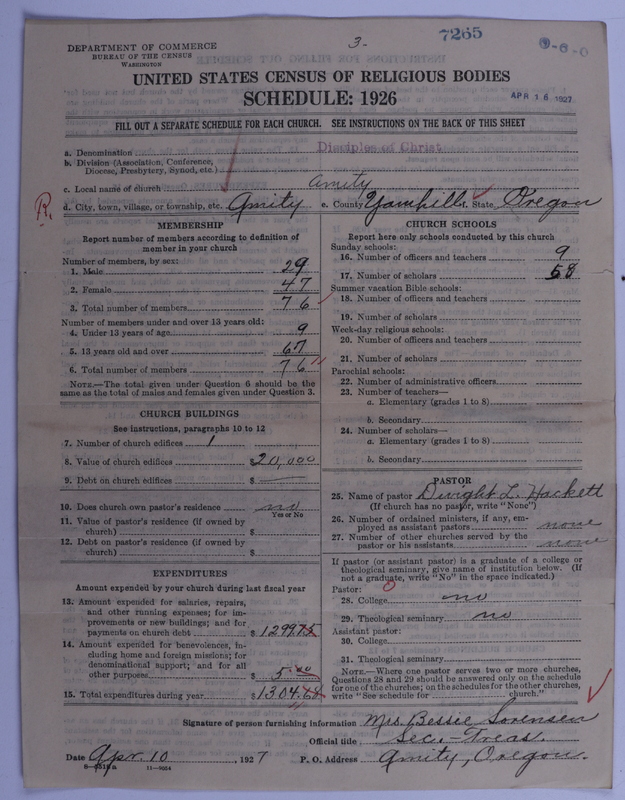 DEPARTMENT OF COMMERCE
BUREAU OF THE CENSUS
WASHINGTON
3-
7265
9-6-0
UNITED STATES CENSUS OF RELIGIOUS BODIES
SCHEDULE: 1926
APR 16 1927
FILL OUT A SEPARATE SCHEDULE FOR EACH CHURCH. SEE INSTRUCTIONS ON THE BACK OF THIS SHEET
a. Denomination Disciples of Christ
b. Division (Association, Conference, Diocese, Presbytery, Synod, etc.)
c. Local name of church Amity
R.
d. City, town, village, or township, etc. Amity e. County Yamhill f. State Oregon
MEMBERSHIP
Report number of members according to definition of
member in your church
Number of members, by sex:
1. Male 29
2. Female 47
3. Total number of members 76
Number of members under and over 13 years old:
4. Under 13 years of age 9
5. 13 years old and over 67
6. Total number of members 76
NOTE.—The total given under Question 6 should be the
same as the total of males and females given under Question 3.
CHURCH BUILDINGS
See instructions, paragraphs 10 to 12
7. Number of church edifices 1
8. Value of church edifices $20,000
9. Debt on church edifices $ —
10. Does church own pastor's residence no
Yes or No
11. Value of pastor's residence (if owned by
church) $
12. Debt on pastor's residence (if owned by
church) $
EXPENDITURES
Amount expended by your church during last fiscal year
13. Amount expended for salaries, repairs,
and other running expenses; for im-
provements or new buildings; and for
payments on church debt $1299.75
14. Amount expended for benevolences, in-
cluding home and foreign missions; for
denominational support; and for all
other purposes $5.00
15. Total expenditures during year $1304.
CHURCH SCHOOLS
Report here only schools conducted by this church
Sunday schools:
16. Number of officers and teachers 9
17. Number of scholars 58
Summer vacation Bible schools:
18. Number of officers and teachers
19. Number of scholars
Week-day religious schools:
20. Number of officers and teachers
21. Number of scholars
Parochial schools:
22. Number of administrative officers
23. Number of teachers—
a. Elementary (grades 1 to 8)
b. Secondary
24. Number of scholars—
a. Elementary (grades 1 to 8)
b. Secondary
PASTOR
25. Name of pastor Dwight L. Hackett
(If church has no pastor, write "None")
26. Number of ordained ministers, if any, em-
ployed as assistant pastors none
27. Number of other churches served by the
pastor or his assistants none
If pastor (or assistant pastor) is a graduate of a college or
theological seminary, give name of institution below. (If
not a graduate, write "No" in the space indicated.)
Pastor:
28. College no
29. Theological seminary no
Assistant pastor:
30. College
31. Theological seminary
NOTE.—Where one pastor serves two or more churches,
Questions 28 and 29 should be answered only on the schedule
for one of the churches; on the schedules for the other churches,
write "See schedule for church."
Signature of person furnishing information Mrs. Bessie Sorensen
Official title Sec.-Treas.
Date Apr. 10, 1927 P. O. Address Amity, Oregon.
11-9664